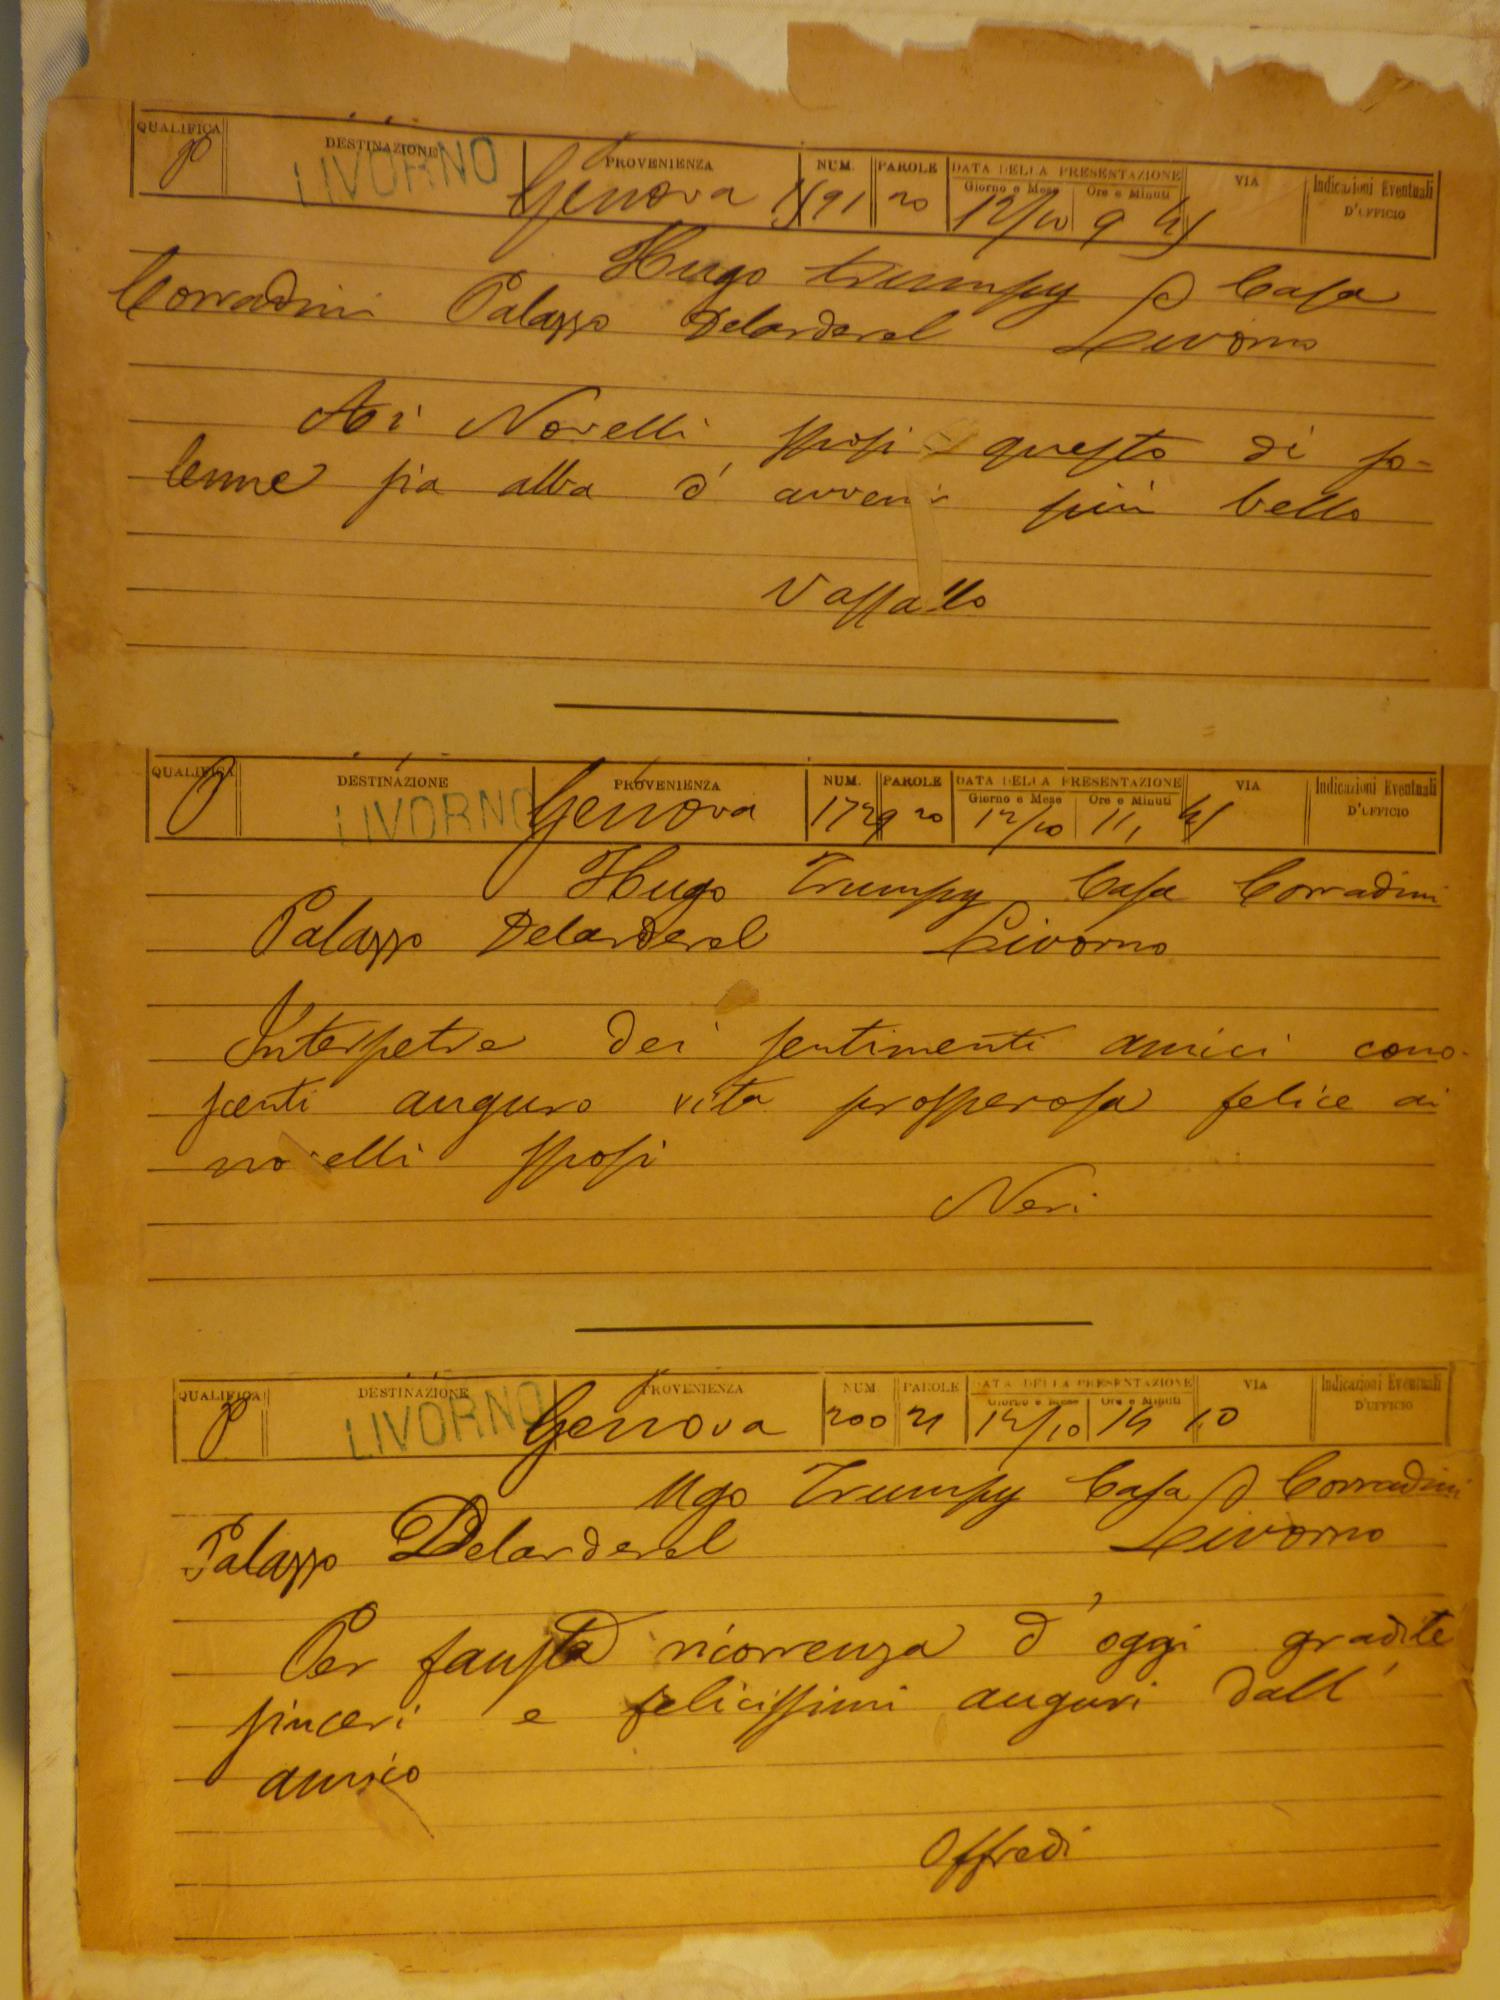 QUALIFICA DESTINAZIONE PROVENIENZA NUM. PAROLE DATA DELLA PRESENTAZIONE VIA Indicazioni Eventuali
Giorno e Mese Ore e Minuti D'UFFICIO
P LIVORNO Genova 91 20 12/10 9
Hugo Trumpy Casa
Corradini Palazzo Delarderel Livorno
Ai Novelli sposi questo di so-
lenne sia alba d' avvenir più bello
Vassallo
QUALIFICA DESTINAZIONE PROVENIENZA NUM. PAROLE DATA DELLA PRESENTAZIONE VIA Indicazioni Eventuali
Giorno e Mese Ore e Minuti D'UFFICIO
P LIVORNO Genova 1729 20 12/10 11
Hugo Trumpy Casa Corradini
Palazzo Delarderel Livorno
Interpetre dei sentimenti amici cono-
scenti auguro vita prosperosa felice ai
novelli sposi
Neri
QUALIFICA DESTINAZIONE PROVENIENZA NUM. PAROLE DATA DELLA PRESENTAZIONE VIA Indicazioni Eventuali
Giorno e Mese Ore e Minuti D'UFFICIO
P LIVORNO Genova 200 21 12/10 10
Ugo Trumpy Casa Corradini
Palazzo Delarderel Livorno
Per fausta ricorrenza d'oggi gradite
sinceri e felicissimi auguri dall'
amico
Offredi